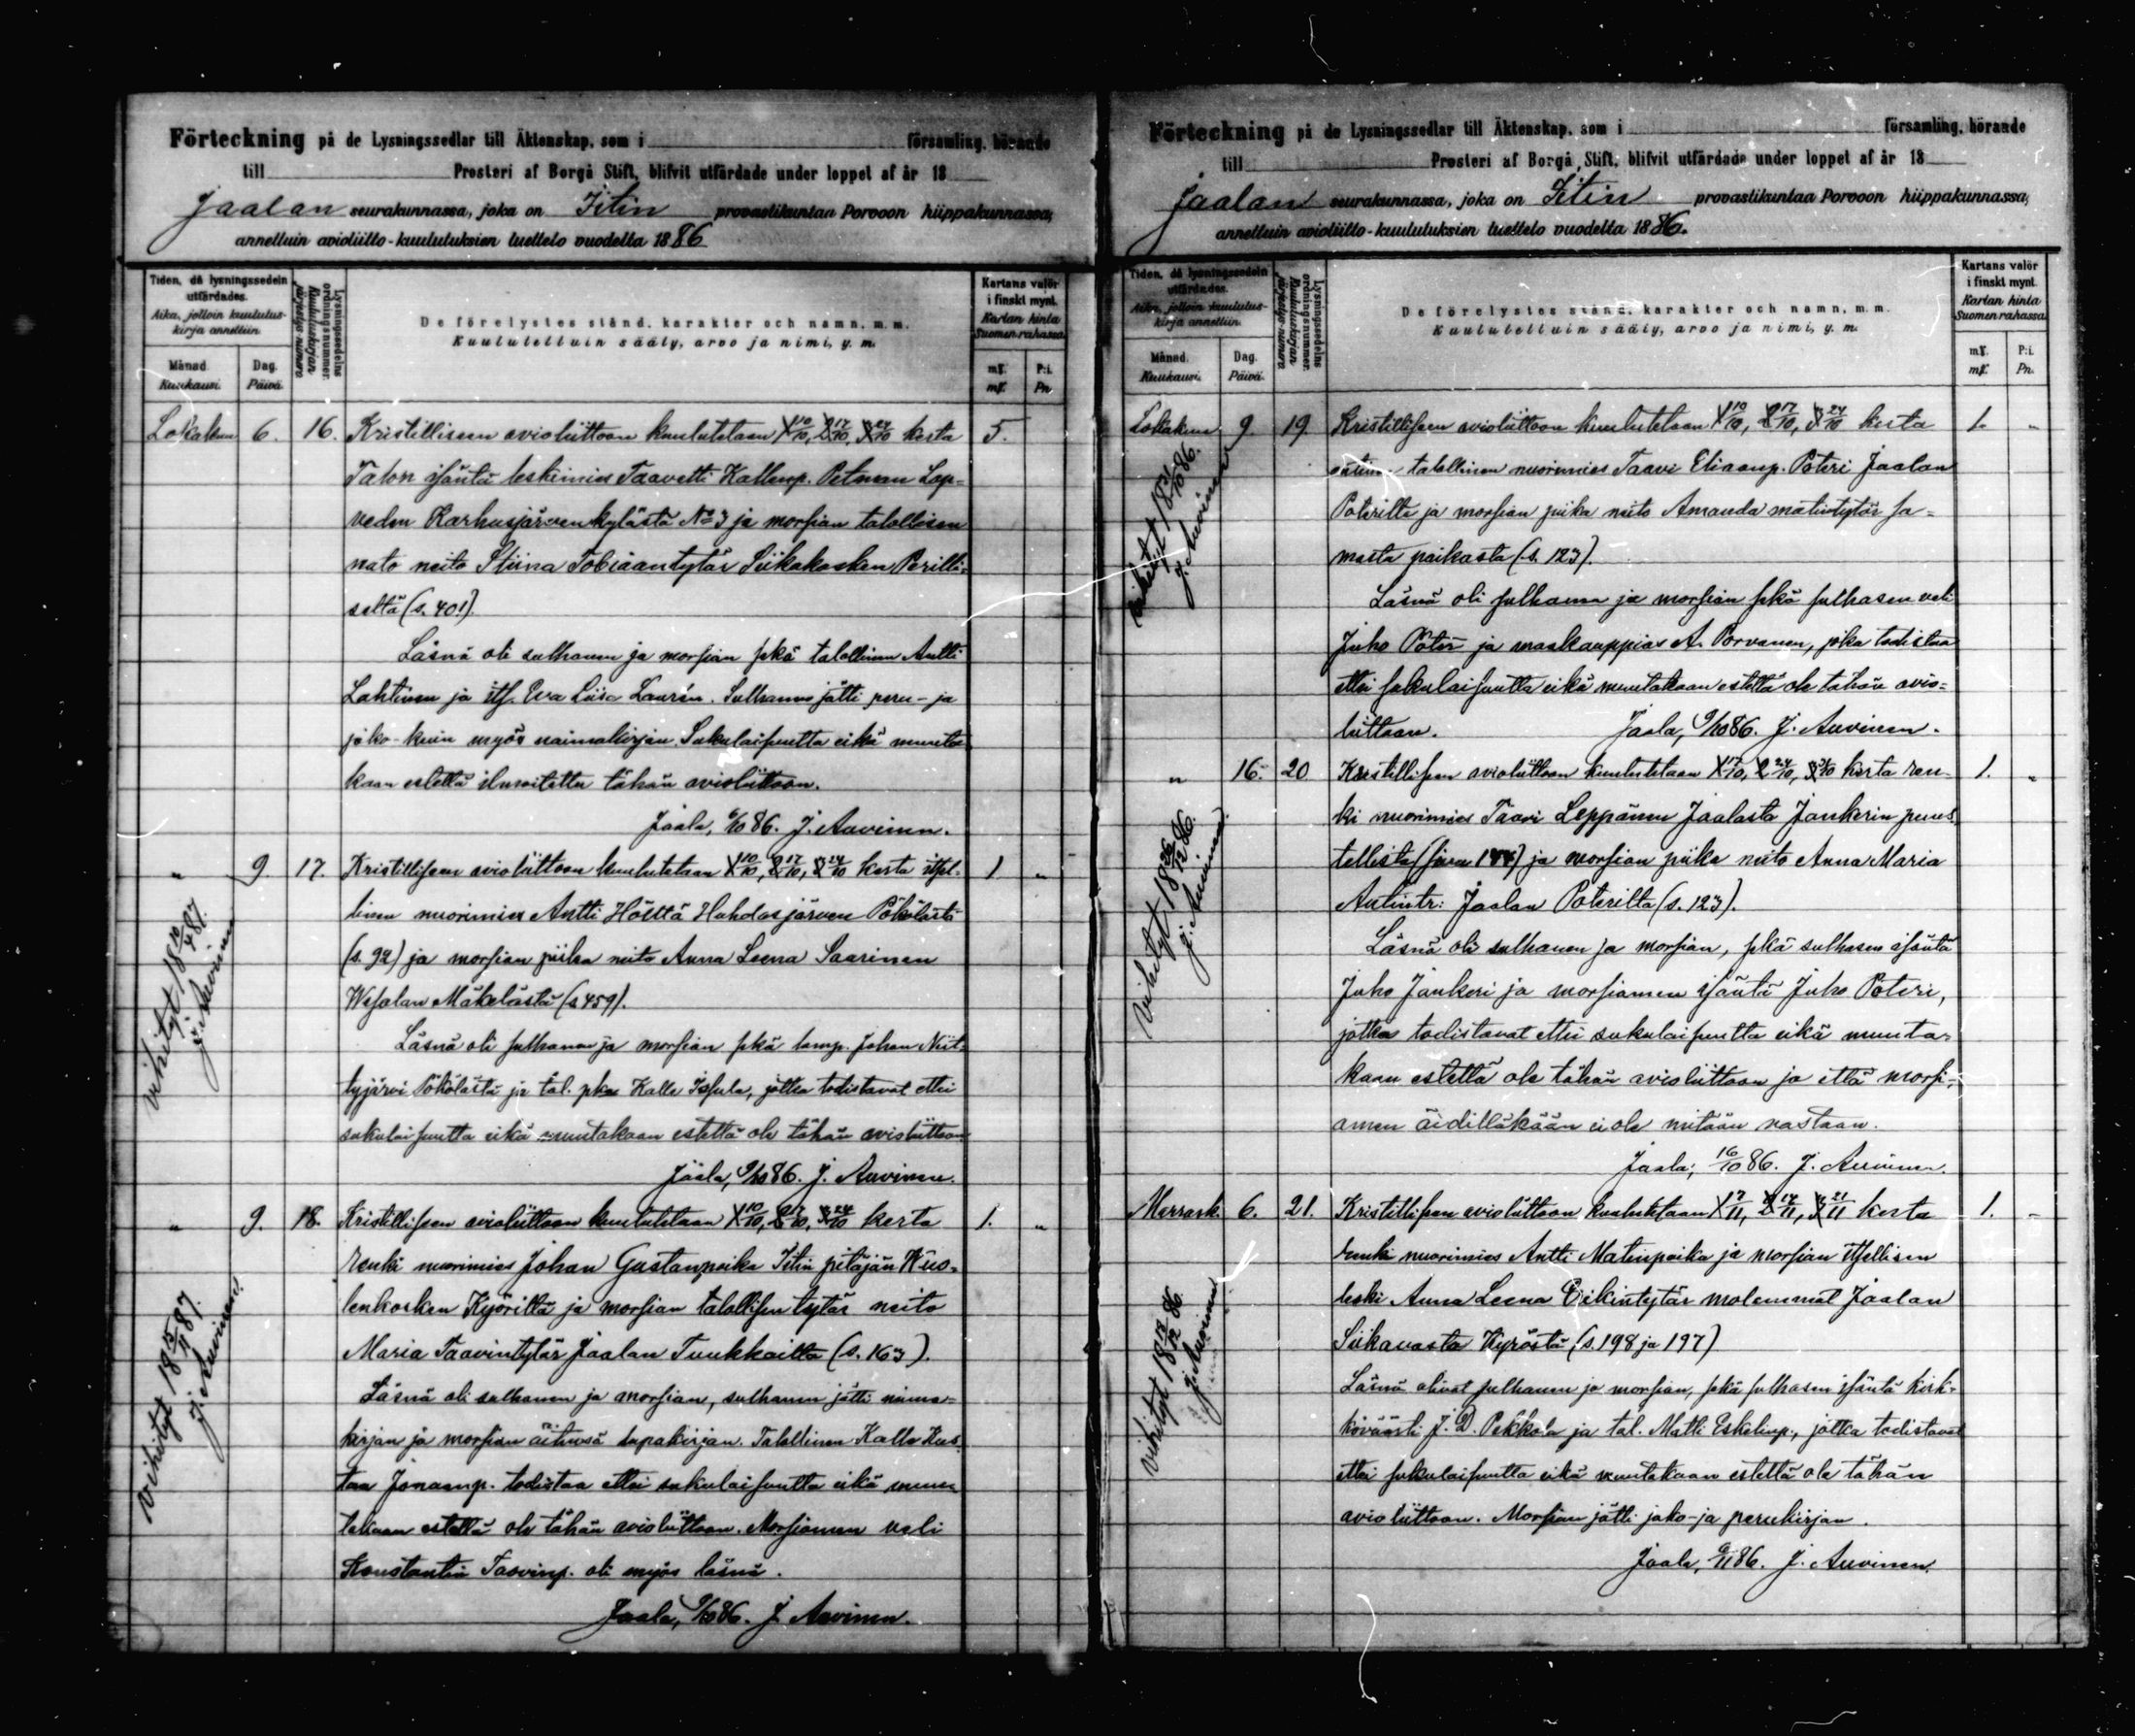 Förteckning på de Lysningssedlar till Äktenskap, som i församling, hörande
till Prosteri af Borgå Stift, blifvit utfärdade under loppet af år 18
Jaalan seurakunnassa, joka on Iitin provastikuntaa Porvoon hiippakunnassa,
annettuin avioliitto-kuulutuksien luettelo vuodelta 1886
Tiden, då lysningssedeln utfärdades.
Aika, jolloin kuulutus-kirja annettiin.
Månad. Kuukausi.
Dag. Päivä.
Lysningssedelns ordningsnummer.
Kuulutuskirjan järjestys-numero
De förelystes stånd, karakter och namn, m. m.
Kuulutettuin sääty, arvo ja nimi, y. m.
Kartans valör i finskt mynt.
Kartan hinta Suomen rahassa
mk. P:i.
mk. Pn.
Lokakuu 6. 16. Kristilliseen avioliittoon kuulutetaan 1 10/10, 2 17/10, 3 24/10 kerta 5.
Talon isäntä leskimies Taavetti Kallenp. Petman Lap-
veden Karhusjärven kylästä No 3 ja morsian talollisen
nato neito Stiina Tobiaantytär Siikakosken Perilli-
seltä (s. 401).
Läsnä oli sulhanen ja morsian sekä talollinen Antti
Lahtinen ja itf. Eva Liisa Laurén. Sulhanen jätti peru- ja
jako- kuin myös naimakirjan. Sukulaisuutta eikä muuta-
kaan estettä ilmoitettu tähän avioliittoon.
Jaala, 6/10 86. J. Auvinen.
" 9. 17. Kristilliseen avioliittoon kuulutetaan 1 10/10, 2 17/10, 3 24/10 kerta itsel- 1 "
linen nuorimies Antti Hölttä Huhdasjärven Pökölästä
(s. 92) ja morsian piika neito Anna Leena Saarinen
Wesalan Mäkelästä (s 459).
Läsnä oli sulhanen ja morsian sekä lamp. Johan Niit-
tyjärvi Pökölästä ja tal. pka Kalle Issula, jotka todistavat ettei
sukulaisuutta eikä muutakaan estettä ole tähän avioliittoon
Jaala, 9/10 86. J. Auvinen.
vihityt 18 10/4 87.
J. Auvinen
" 9. 18. Kristillisen avioliittoon kuulutetaan 1 10/10, 2 17/10, 3 24/10 kerta 1. "
renki nuorimies Johan Gustanpoika Iitin pitäjän Wuo-
lenkosken Kyöriltä ja morsian talollisen tytär neito
Maria Taavintytär Jaalan Tuukkailta (s. 163).
Läsnä oli sulhanen ja morsian, sulhanen jätti nimi-
kirjan ja morsian äitinsä lupakirjan. Talollinen Kalle Kus-
taa Jonaanp. todistaa ettei sukulaisuutta eikä muu-
takaan estettä ole tähän avioliittoon. Morsiamen veli
Konstantin Taavinp. oli myös läsnä.
Jaala, 9/10 86. J. Auvinen.
J. Auvinen
Förteckning på de Lysningssedlar till Äktenskap, som i församling, hörande
till Prosteri af Borgå Stift, blifvit utfärdade under loppet af år 18
Jaalan seurakunnassa, joka on Iitin provastikuntaa Porvoon hiippakunnassa,
annettuin avioliitto-kuulutuksien luettelo vuodelta 1886.
Tiden, då lysningssedeln utfärdades.
Aika, jolloin kuulutus-kirja annettiin.
Månad. Kuukausi.
Dag. Päivä.
Lysningssedelns ordningsnummer.
Kuulutuskirjan järjestys-numero
De förelystes stånd, karakter och namn, m. m.
Kuulutettuin sääty, arvo ja nimi, y. m.
Kartans valör i finskt mynt.
Kartan hinta Suomen rahassa
mk. P:i.
mk. Pn.
Lokakuu 9. 19. Kristilliseen avioliittoon kuulutetaan 1 10/10, 2 17/10, 3 24/10 kerta 1. "
talollinen nuorimies Taavi Eliaanp. Poteri Jaalan
Poterilta ja morsian piika neito Amanda Matintytär sa-
masta paikasta (s. 123).
Läsnä oli sulhanen ja morsian sekä sulhasen veli
Juho Poteri ja maakauppias A. Porvanen, joka todistaa
ettei sukulaisuutta eikä muutakaan estettä ole tähän avio-
liittoon. Jaala, 9/10 86. J. Auvinen.
J. Auvinen
" 16. 20 Kristillisen avioliittoon kuulutetaan 1 17/10, 2 24/10, 3 31/10 kerta ren- 1. "
ki nuorimies Taavi Leppänen Jaalasta Jankerin puus-
tellista (sivu 144) ja morsian piika neito Anna Maria
Antintr: Jaalan Poterilta (s. 123).
Läsnä oli sulhanen ja morsian, sekä sulhasen isäntä
Juho Jankeri ja morsiamen isäntä Juho Poteri,
jotka todistavat ettei sukulaisuutta eikä muuta-
kaan estettä ole tähän avioliittoon ja että morsi-
amen äidilläkään ei ole mitään vastaan.
Jaala, 16/10 86. J. Auvinen.
vihityt 18 26/12 86.
J. Auvinen
Marrask. 6. 21. Kristillisen avioliittoon kuulutetaan 1 7/11, 2 14/11, 3 21/11 kerta 1. "
renki nuorimies Antti Matinpoika ja morsian itsellisen
leski Anna Leena Erikintytär molemmat Jaalan
Siikavasta Kyröstä (s. 198 ja 197)
Läsnä olivat sulhanen ja morsian, sekä sulhasen isäntä kirk-
koväärti J. D. Pekkola ja tal. Matti Eskelinp., jotka todistavat
ettei sukulaisuutta eikä muutakaan estettä ole tähän
avioliittoon. Morsian jätti jako- ja perukirjan.
Jaala, 6/11 86. J. Auvinen.
J. Auvinen